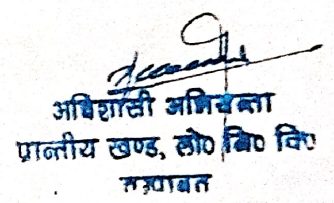 अधिशासी अभियन्ता
प्रान्तीय खण्ड, लो० नि० वि०